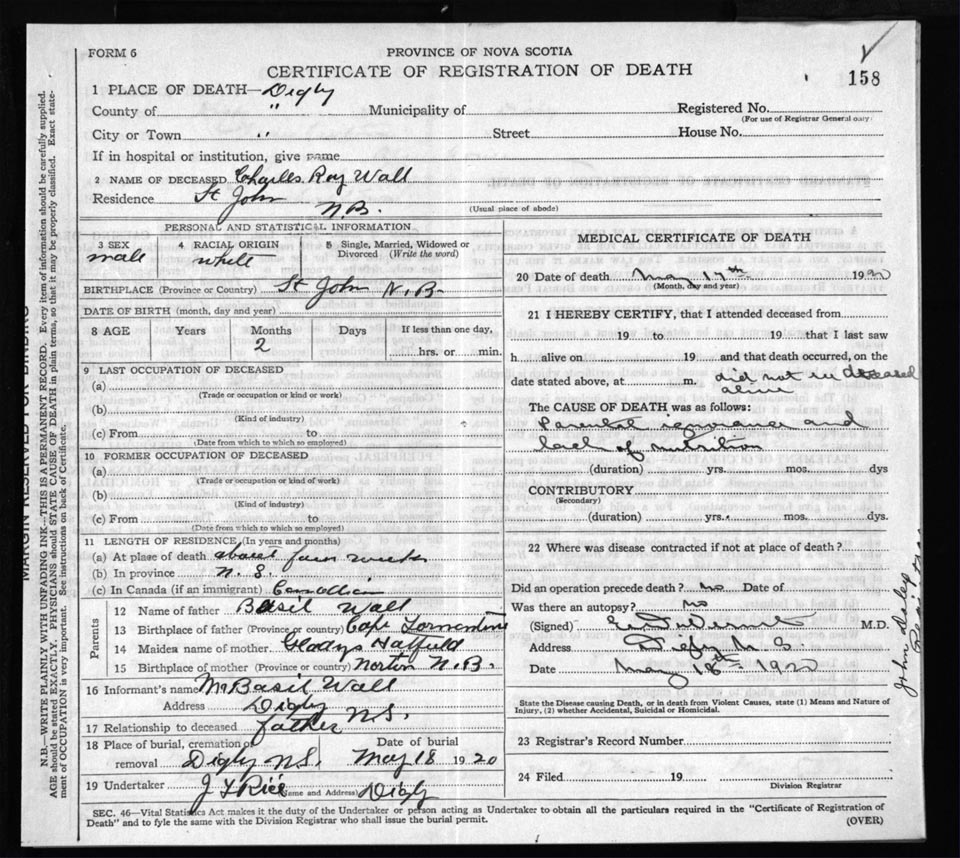 FORM 6
PROVINCE OF NOVA SCOTIA
CERTIFICATE OF REGISTRATION OF DEATH
158
1 PLACE OF DEATH—Digby
County of " Municipality of Registered No.
(For use of Registrar General only)
City or Town " Street House No.
If in hospital or institution, give name
2 NAME OF DECEASED Charles Roy Wall
Residence St John N.B.
(Usual place of abode)
PERSONAL AND STATISTICAL INFORMATION
3 SEX 4 RACIAL ORIGIN 5 Single, Married, Widowed or Divorced (Write the word)
male white
BIRTHPLACE (Province or Country) St John N.B.
DATE OF BIRTH (month, day and year)
8 AGE Years Months Days If less than one day,
2 hrs. or min.
9 LAST OCCUPATION OF DECEASED
(a)
(Trade or occupation or kind or work)
(b)
(Kind of industry)
(c) From to
(Date from which to which so employed)
10 FORMER OCCUPATION OF DECEASED
(a)
(Trade or occupation or kind of work)
(b)
(Kind of industry)
(c) From to
(Date from which to which so employed)
11 LENGTH OF RESIDENCE (In years and months)
(a) At place of death about four weeks
(b) In province N.S.
(c) In Canada (if an immigrant) Canadian
Parents
12 Name of father Basil Wall
13 Birthplace of father (Province or country) Cape Tormentine
14 Maiden name of mother Gladys Hatfield
15 Birthplace of mother (Province or country) Norton N.B.
16 Informant's name Mr Basil Wall
Address Digby N.S.
17 Relationship to deceased father
18 Place of burial, cremation or removal Digby N.S. Date of burial May 18 1920
19 Undertaker J Y Rice (Name and Address) Digby
MEDICAL CERTIFICATE OF DEATH
20 Date of death May 17th 1920
(Month, day and year)
21 I HEREBY CERTIFY, that I attended deceased from
19 to 19 that I last saw
h alive on 19 and that death occurred, on the
date stated above, at m. did not see deceased
alive
The CAUSE OF DEATH was as follows:
Parental ignorance and
lack of nutrition
(duration) yrs. mos. dys
CONTRIBUTORY
(Secondary)
(duration) yrs. mos. dys.
22 Where was disease contracted if not at place of death?
Did an operation precede death? no Date of
Was there an autopsy? no
(Signed) M.D.
Address Digby N.S.
Date May 18th 1920
State the Disease causing Death, or in death from Violent Causes, state (1) Means and Nature of
Injury, (2) whether Accidental, Suicidal or Homicidal.
23 Registrar's Record Number
24 Filed 19
Division Registrar
SEC. 46—Vital Statistics Act makes it the duty of the Undertaker or person acting as Undertaker to obtain all the particulars required in the "Certificate of Registration of
Death" and to fyle the same with the Division Registrar who shall issue the burial permit.
(OVER)
MARGIN RESERVED FOR BINDING
N.B.—WRITE PLAINLY WITH UNFADING INK—THIS IS A PERMANENT RECORD. Every item of information should be carefully supplied.
AGE should be stated EXACTLY. PHYSICIANS should STATE CAUSE OF DEATH in plain terms, so that it may be properly classified. Exact state-
ment of OCCUPATION is very important. See instructions on back of Certificate.
John Daley